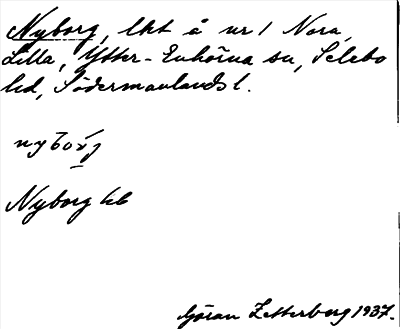 Nyborg, lht å nr 1 Nora,
Lilla, Ytter-Enhörna sn, Selebo
hd, Södermanlands l.
nybơrj
Nyborg kb
Göran Zetterberg 1937.